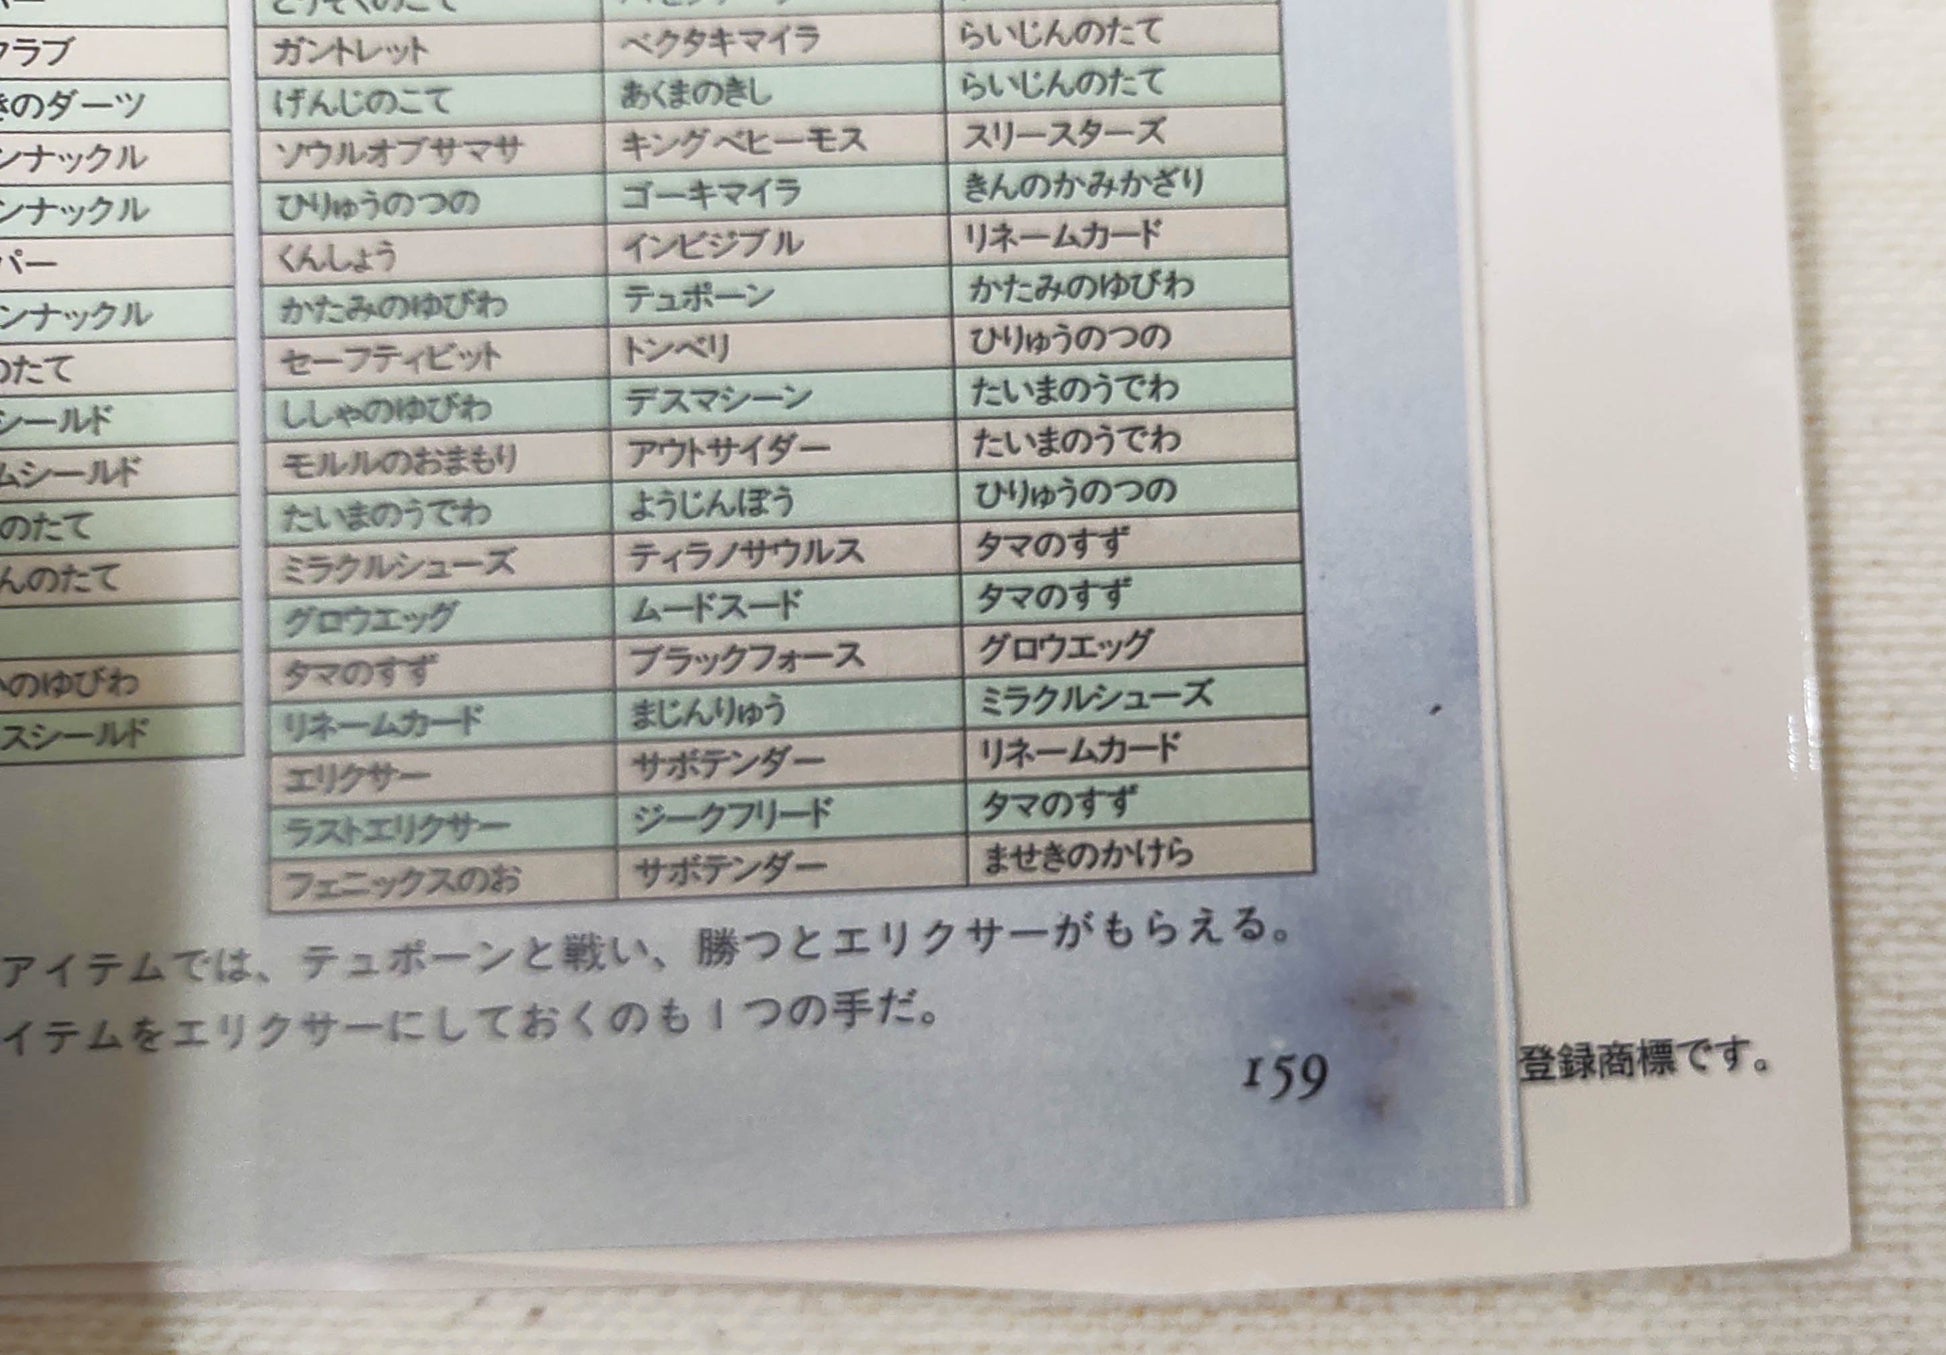 ラブ
きのダーツ
ンナックル
ンナックル
パー
ンナックル
のたて
シールド
ムシールド
のたて
んのたて
のゆびわ
スシールド
ガントレット ベクタキマイラ らいじんのたて
げんじのこて あくまのきし らいじんのたて
ソウルオブサマサ キングベヒーモス スリースターズ
ひりゅうのつの ゴーキマイラ きんのかみかざり
くんしょう インビジブル リネームカード
かたみのゆびわ テュポーン かたみのゆびわ
セーフティビット トンベリ ひりゅうのつの
ししゃのゆびわ デスマシーン たいまのうでわ
モルルのおまもり アウトサイダー たいまのうでわ
たいまのうでわ ようじんぼう ひりゅうのつの
ミラクルシューズ ティラノサウルス タマのすず
グロウエッグ ムードスード タマのすず
タマのすず ブラックフォース グロウエッグ
リネームカード まじんりゅう ミラクルシューズ
エリクサー サボテンダー リネームカード
ラストエリクサー ジークフリード タマのすず
フェニックスのお サボテンダー ませきのかけら
アイテムでは、テュポーンと戦い、勝つとエリクサーがもらえる。
イテムをエリクサーにしておくのも1つの手だ。
159
登録商標です。